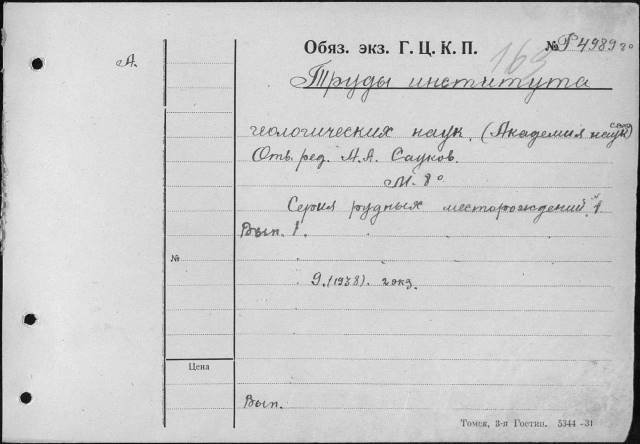 Обяз. экз. Г. Ц. К. П. № Р 4989 го
А.
163
Труды института
геологических наук. (Академия наук ссср)
Отв. ред. А.А. Сауков.
М. 8°
Серия рудных месторождений. №1
Вып. 1.
№
9. (1938). 2 экз.
Цена
Вып.
Томск, 3-я Гостип. 5344 -31